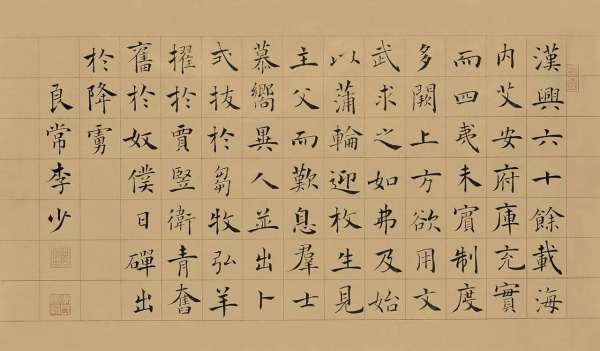 漢興六十餘載海
内艾安府庫充實
而四夷未賓制度
多闕上方欲用文
武求之如弗及始
以蒲輪迎枚生見
主父而歎息羣士
慕嚮異人並出卜
式拔於芻牧弘羊
擢於賈豎衛青奮
舊於奴僕日磾出
於降虜
良常李少